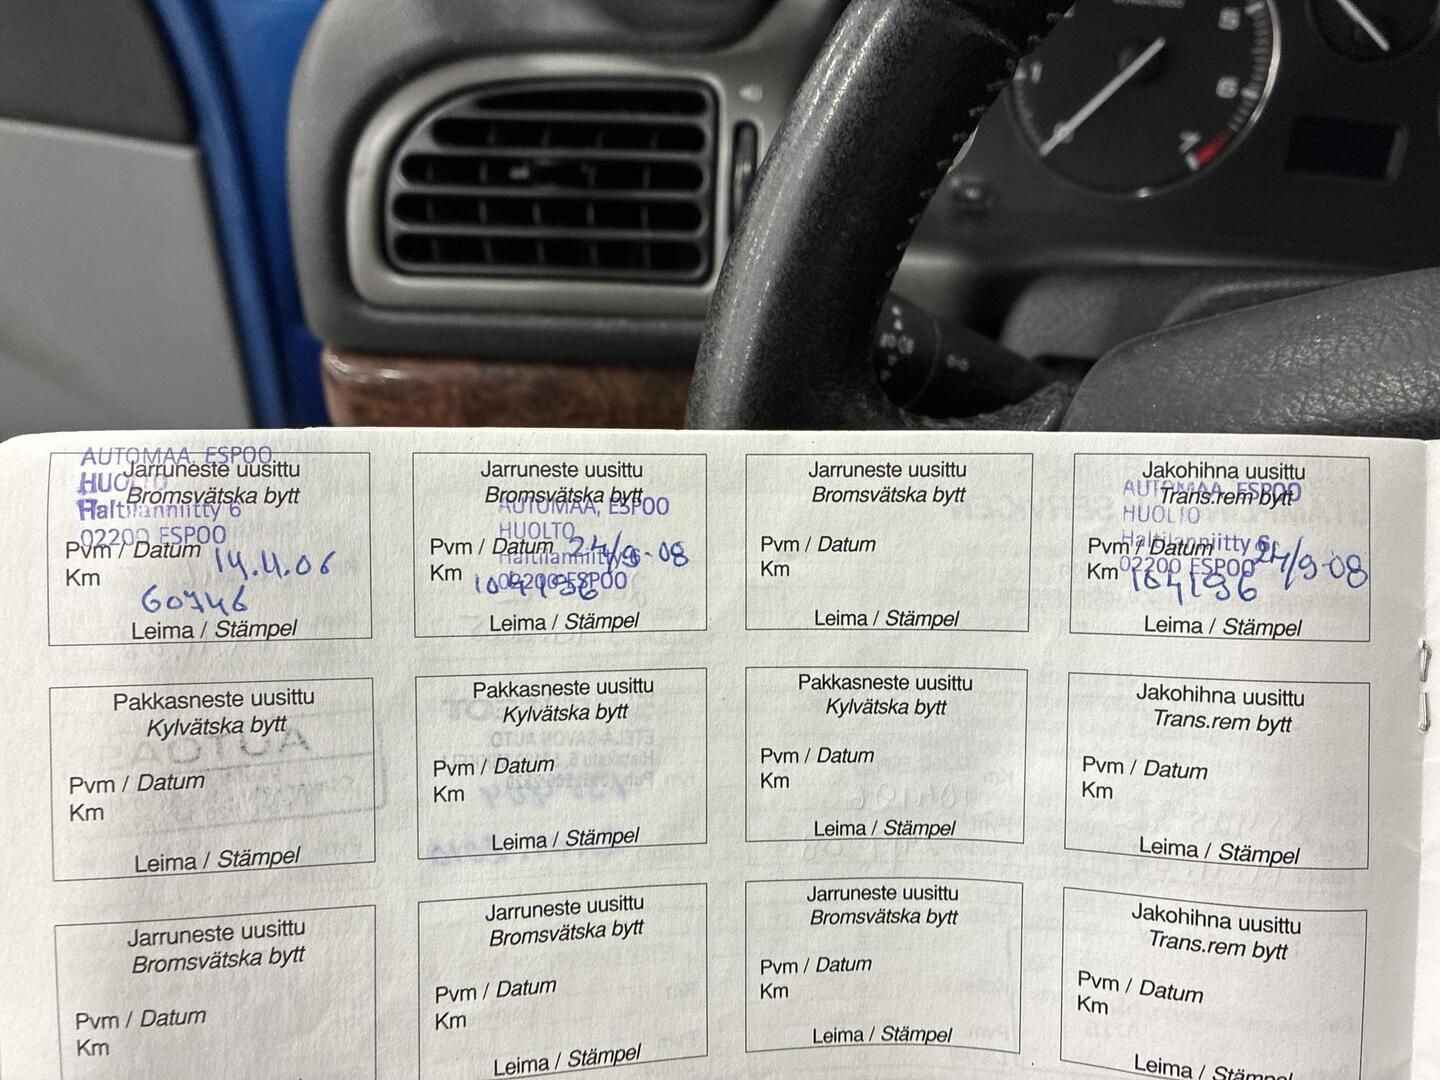 5
6
7
1
0
AUTOMAA, ESPOO
HUOLTO
Haltilanniitty 6
02200 ESPOO
Jarruneste uusittu
Bromsvätska bytt
Pvm / Datum 14.11.06
Km 60746
Leima / Stämpel
Jarruneste uusittu
Bromsvätska bytt
AUTOMAA, ESPOO
HUOLTO
Haltilanniitty 6
02200 ESPOO
Pvm / Datum 24/9-08
Km 104196
Leima / Stämpel
Jarruneste uusittu
Bromsvätska bytt
Pvm / Datum
Km
Leima / Stämpel
Jakohihna uusittu
Trans.rem bytt
AUTOMAA, ESPOO
HUOLTO
Haltilanniitty 6
02200 ESPOO
Pvm / Datum 24/9-08
Km 104196
Leima / Stämpel
Pakkasneste uusittu
Kylvätska bytt
Pvm / Datum
Km
Leima / Stämpel
Pakkasneste uusittu
Kylvätska bytt
Pvm / Datum
Km
Leima / Stämpel
Pakkasneste uusittu
Kylvätska bytt
Pvm / Datum
Km
Leima / Stämpel
Jakohihna uusittu
Trans.rem bytt
Pvm / Datum
Km
Leima / Stämpel
Jarruneste uusittu
Bromsvätska bytt
Pvm / Datum
Km
Jarruneste uusittu
Bromsvätska bytt
Pvm / Datum
Km
Leima / Stämpel
Jarruneste uusittu
Bromsvätska bytt
Pvm / Datum
Km
Leima / Stämpel
Jakohihna uusittu
Trans.rem bytt
Pvm / Datum
Km
Leima / Stämpel